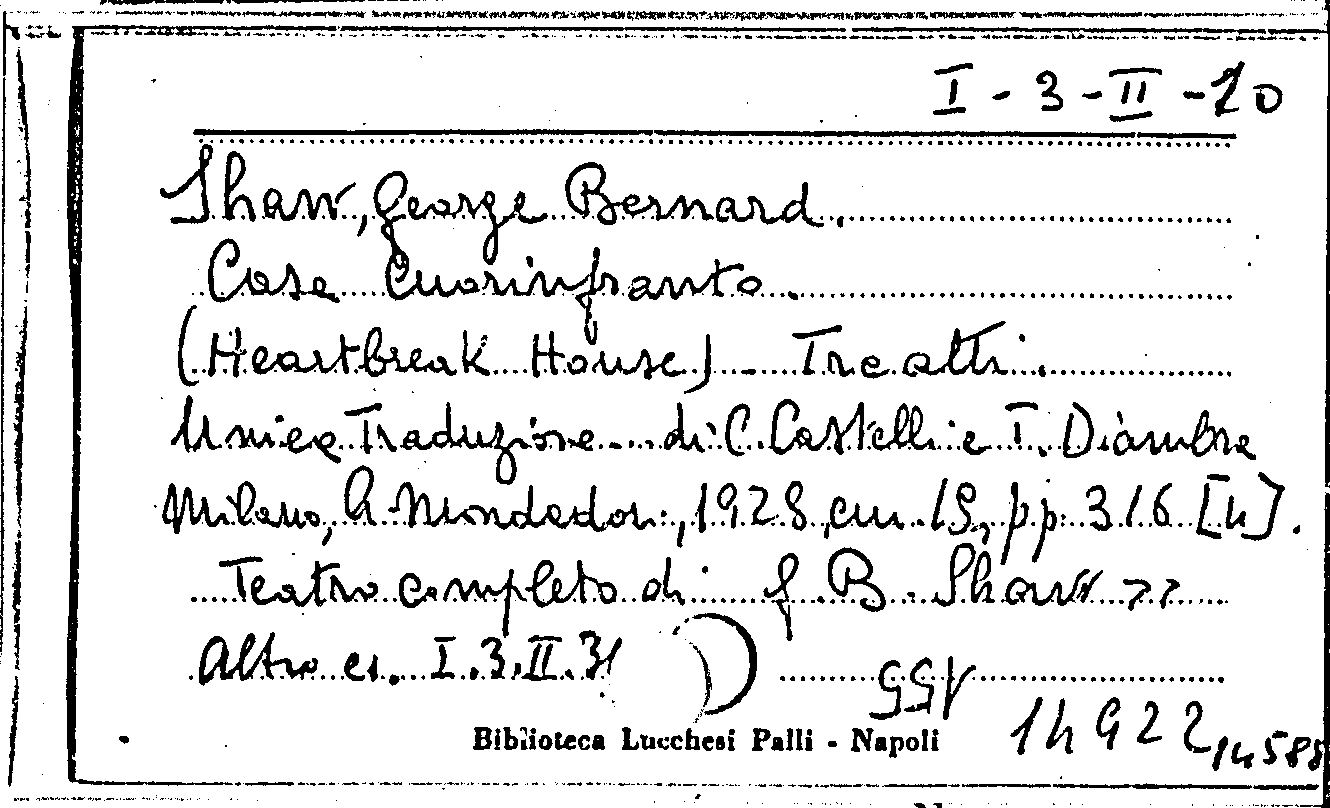 I - 3 - II - 20
Shaw, George Bernard.
Casa Cuorinfranto.
(Heartbreak House) - Tre atti.
Unica Traduzione di C. Castelli e T. Diambra
Milano, A. Mondadori, 1928, cm. 19, pp. 316 [4].
Teatro completo di G. B. Shaw >>
Altro es. I.3.II.31
Biblioteca Lucchesi Palli - Napoli
14922